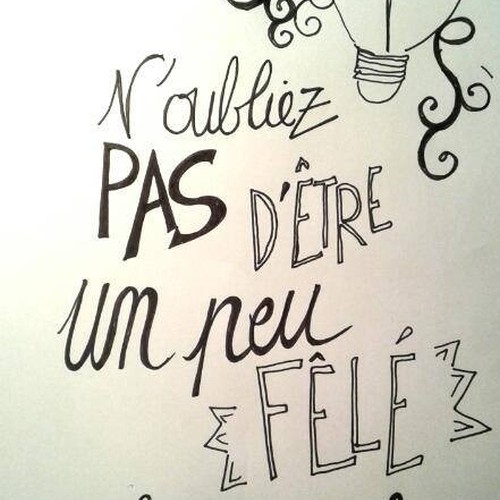 N'oubliez
PAS D'ÊTRE
un peu
FÊLÉ